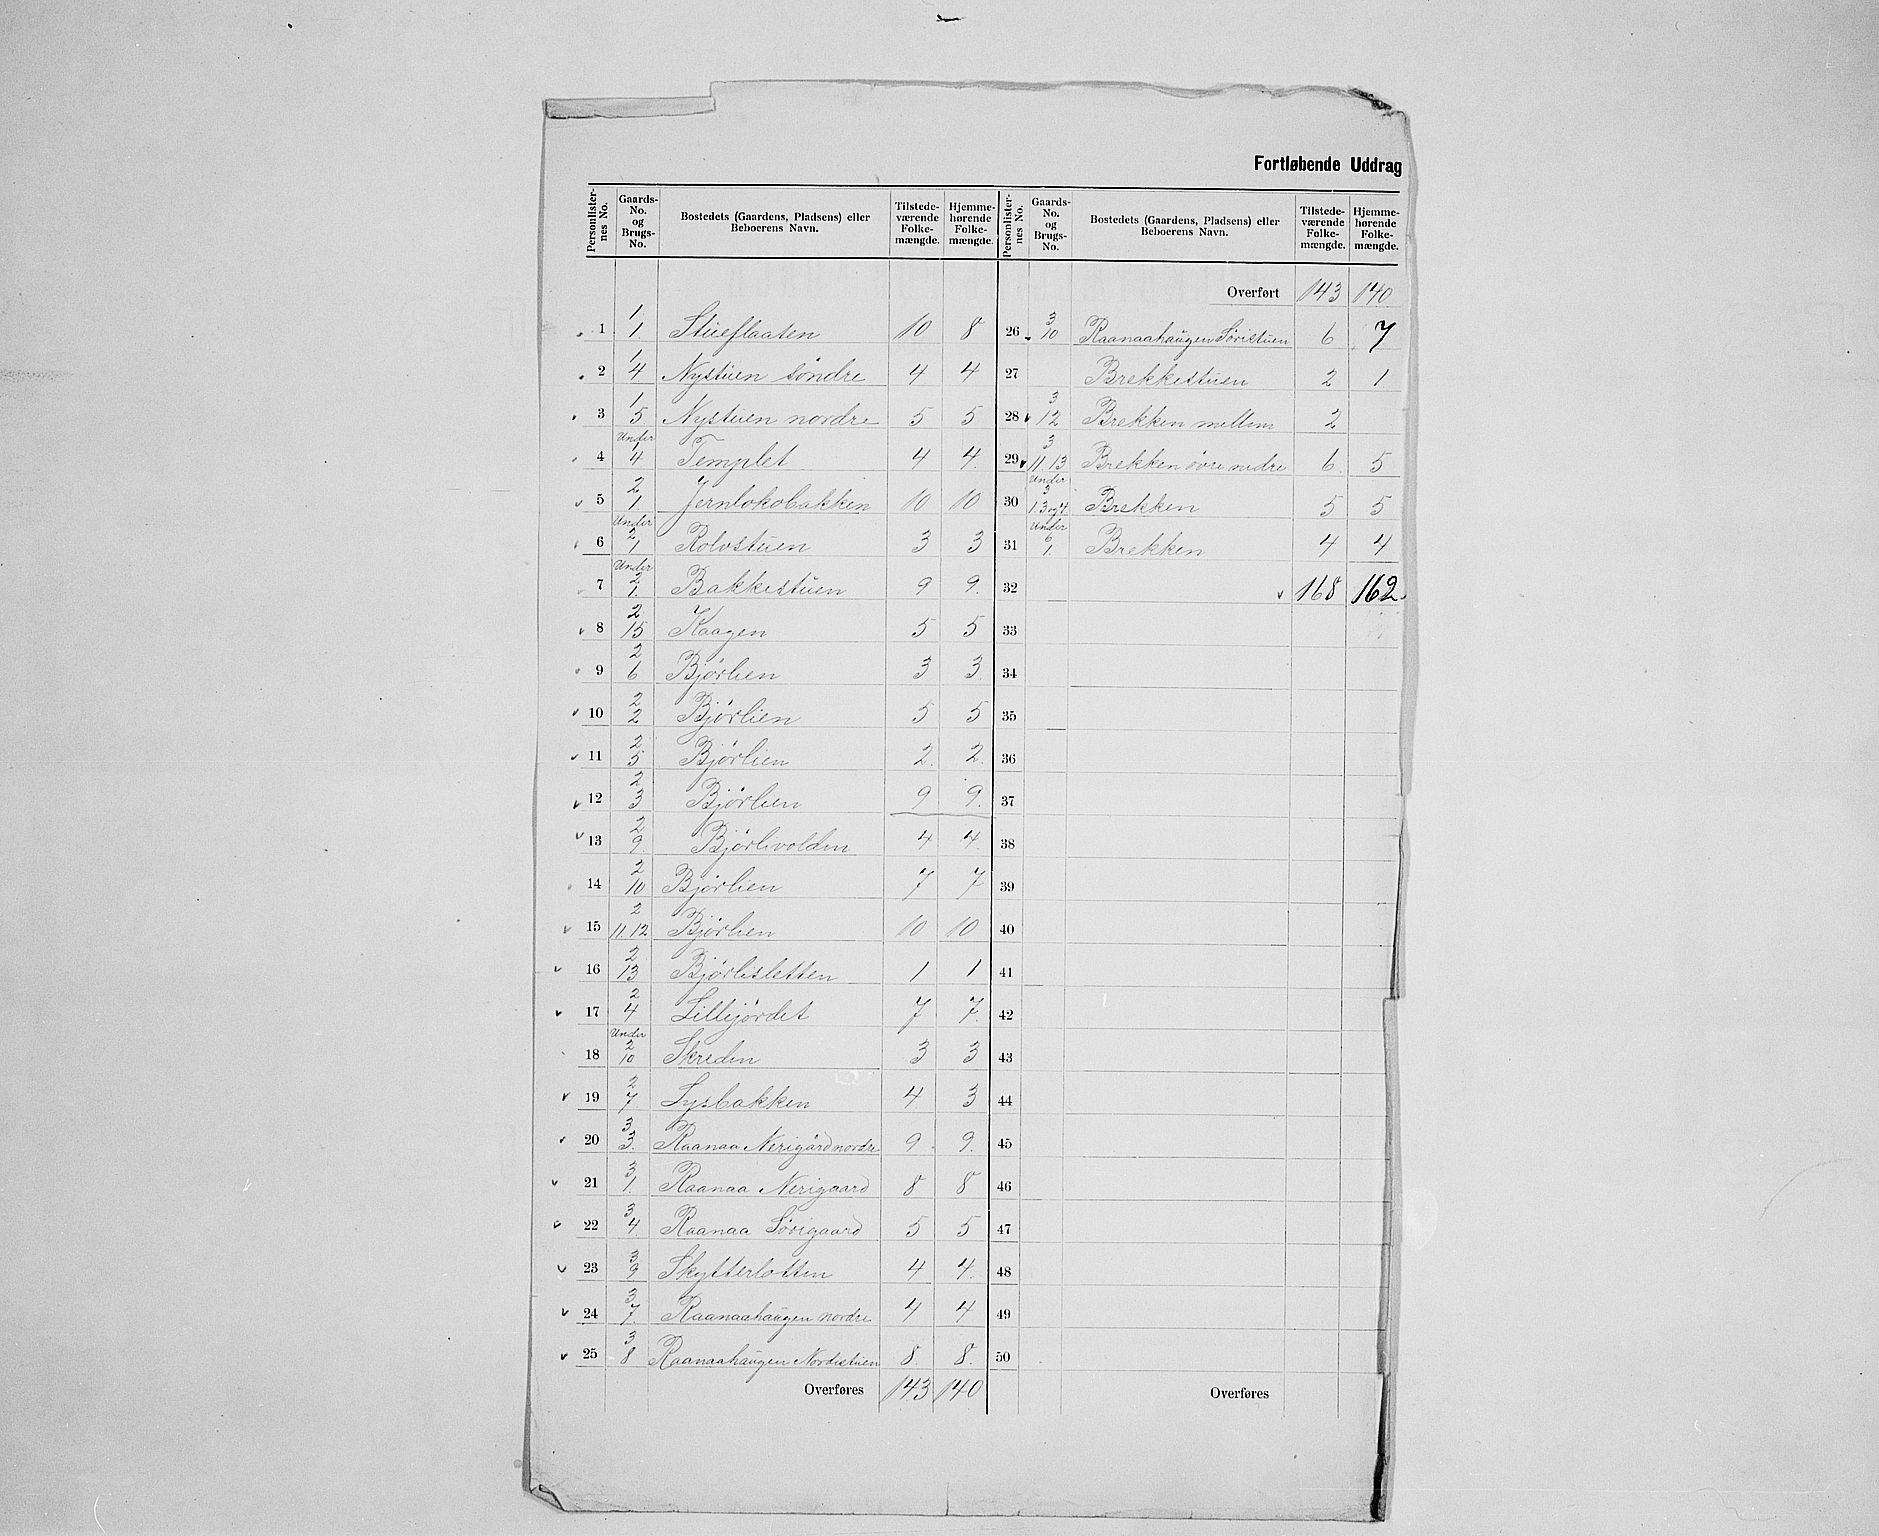 Fortløbende Uddrag
Personlisternes No. | Gaards-No. og Brugs-No. | Bostedets (Gaardens, Pladsens) eller Beboerens Navn. | Tilstedeværende Folkemængde. | Hjemmehørende Folkemængde.
1 | 1 1. | Stueflaaten | 10 | 8
2 | 1 4 | Nystuen søndre | 4 | 4
3 | 1 5 | Nystuen nordre | 5 | 5
4 | Under 1 4 | Templet | 4 | 4.
5 | 2 1 | Jernlokobakken | 10 | 10
6 | Under 2 1 | Rolvstuen | 3 | 3
7 | Under 2 1. | Bakkestuen | 9 | 9.
8 | 2 15 | Kaagen | 5 | 5
9 | 2 6 | Bjørlien | 3 | 3
10 | 2 2 | Bjørlien | 5 | 5
11 | 2 5 | Bjørlien | 2. | 2.
12 | 2 3 | Bjørlien | 9 | 9.
13 | 2 9. | Bjørlivolden | 4 | 4.
14 | 2 10 | Bjørlien | 7 | 7
15 | 2 11.12 | Bjørlien | 10 | 10
16 | 2 13 | Bjørlisletten | 1 | 1
17 | 2 4 | Lillejordet | 7 | 7.
18 | Under 2 10 | Skreden | 3 | 3
19 | 2 7 | Lysbakken | 4 | 3
20 | 3 3. | Raanaa Nerigård nordre | 9. | 9.
21 | 3 1. | Raanaa Nerigaard | 8 | 8
22 | 3 4. | Raanaa Sørigaard | 5 | 5
23 | 3 9 | Skytterlotten | 4 | 4.
24 | 3 7. | Raanaahaugen nordre | 4 | 4
25 | 3 8 | Raanaahaugen Nordistuen | 8 | 8.
Overføres | 143 | 140
Personlisternes No. | Gaards-No. og Brugs-No. | Bostedets (Gaardens, Pladsens) eller Beboerens Navn. | Tilstedeværende Folkemængde. | Hjemmehørende Folkemængde.
Overført | 143 | 140.
26 | 3 10 | Raanaahaugen Søristuen | 6 | 7
27 | Brekkestuen | 2 | 1
28 | 3 12 | Brekken mellem | 2
29 | 3 11 13 | Brekken øvre nedre | 6. | 5
30 | Under 3 1 3 og 4 | Brekken | 5 | 5
31 | Under 6 1 | Brekken | 4 | 4
32 | 168 | 162.
33
34
35
36
37
38
39
40
41
42
43
44
45
46
47
48
49
50
Overføres